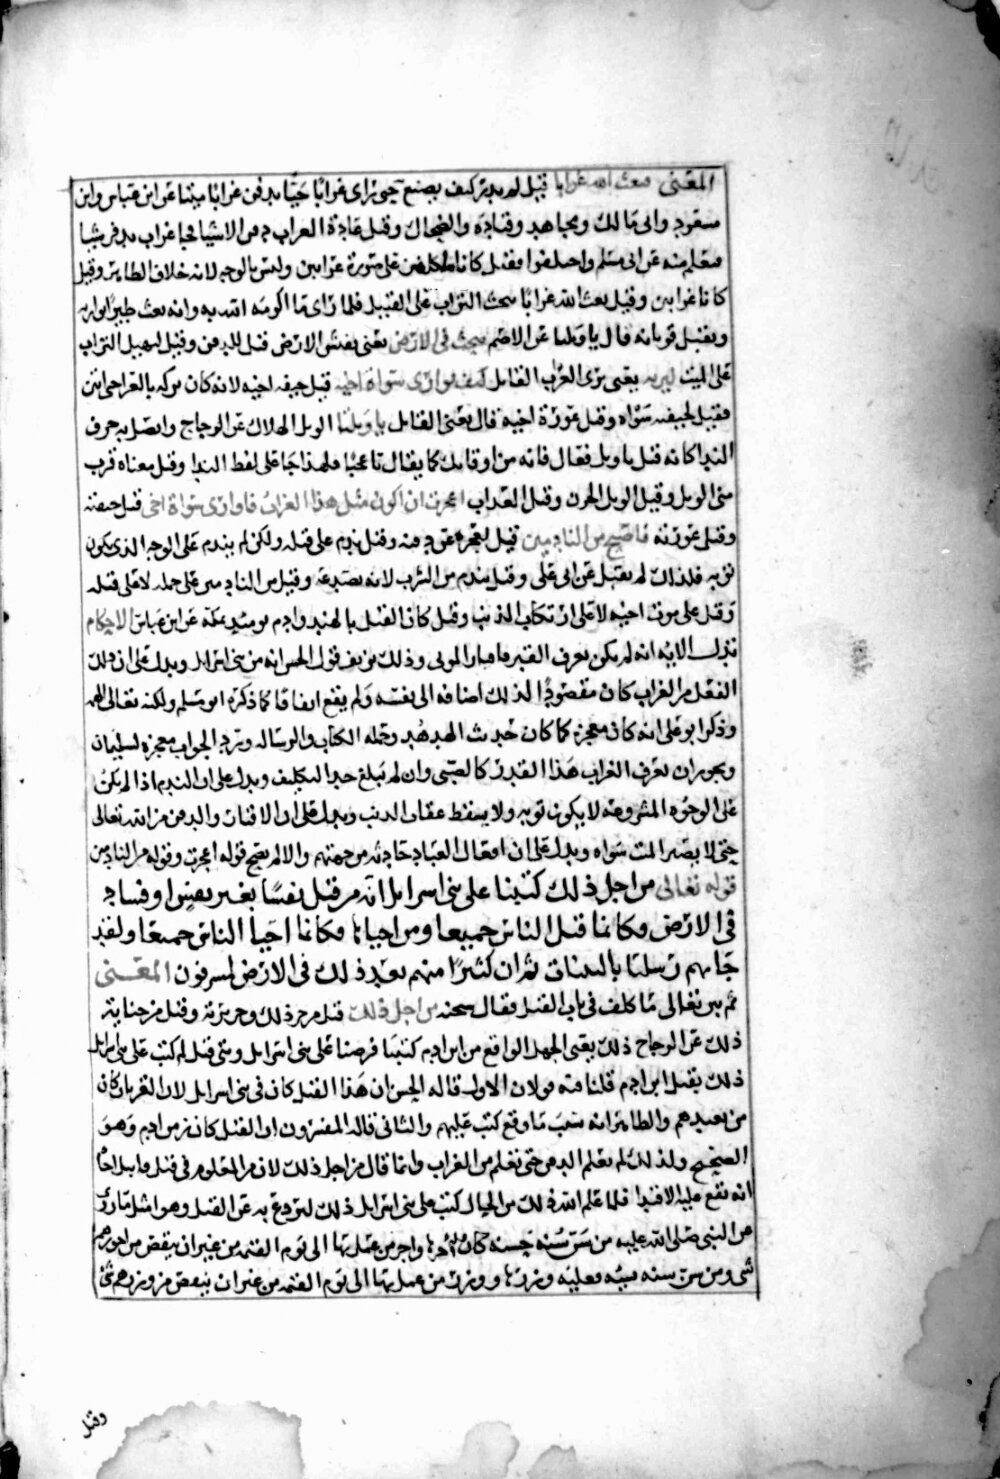 المعنى فبعث الله غرابا قيل لم يدر كيف يصنع حتى رأى غرابا حيا يدفن غرابا ميتا عن ابن عباس وابن
مسعود وابى مالك ومجاهد وقتادة والضحاك وقيل عادة الغراب دفن الاشيا فجا غراب يدفن شيا
فتعلم منه عن ابى مسلم واختلفوا فقيل كانا ملكين على صورة غرابين وليس بالوجه لانه خلاف الظاهر وقيل
كانا غرابين وقيل بعث الله غرابا يبحث التراب على القتيل فلما رأى ما اكرمه الله به وانه بعث طيرا ليواريه
وتقبل قربانه قال يا ويلتا عن الاصم يبحث فى الارض يعنى يفتش الارض قيل للدفن وقيل ليهيل التراب
على الميت ليريه يعنى يرى الغراب القاتل كيف يوارى سواة اخيه قيل جيفة اخيه لانه كان تركه بالعرا حتى انتن
فقيل لجيفته سواة وقيل عورة اخيه قال يعنى القاتل يا ويلتا الويل الهلاك عن الزجاج واتصل به حرف
الندا كانه قيل يا ويل فقال فانه من اوقاتك كما يقال يا عجبا فلهذا جا على لفظ الندا وقيل معناه قرب
منى الويل وقيل الويل الحزن وقيل العذاب اعجزت ان اكون مثل هذا الغراب فاوارى سواة اخى قيل جيفته
وقيل عورته فاصبح من النادمين قيل لعجزه عن دفنه وقيل ندم على قتله ولكن لم يندم على الوجه الذى يكون
توبة فلذلك لم تقبل عن ابى على وقيل ندم من القرب لانه وقيل من النادمين على حمله لا على قتله
وقيل على موت اخيه لا على ارتكاب الذنب وقيل كان القتل بالهند وادم يومئذ بمكة عن ابن عباس الاحكام
تدل الاية انه لم يكن يعرف القبر ما مبار الموتى وذلك يزيف قول الحسن انه من بنى اسرايل ويدل على ان ذلك
الفعل من الغراب كان مقصودا لذلك اضافه الى نفسه ولم يقع اتفاقا كما ذكره ابو مسلم ولكنه تعالى الهمه
وذكر ابو على انه كان معجزة كما كان حديث الهدهد وحمله الكتاب والرسالة ورد الجواب معجزة لسليمان
ويجوز ان يعرف الغراب هذا القدر كالصبى وان لم يبلغ حد التكليف ويدل على ان الندم اذا لم يكن
على الوجوه المشروعة لا يكون توبة ولا يسقط عقاب الذنب ويدل على ان الاقبار والدفن من الله تعالى
حتى لا تصير الميت سواة ويدل على ان افعال العباد حادثة من جهتهم والا لم يصح قوله اعجزت وقوله من النادمين
قوله تعالى من اجل ذلك كتبنا على بنى اسرايل انه من قتل نفسا بغير نفس او فساد
فى الارض فكانما قتل الناس جميعا ومن احياها فكانما احيا الناس جميعا ولقد
جاتهم رسلنا بالبينات ثم ان كثيرا منهم بعد ذلك فى الارض لمسرفون المعنى
ثم بين تعالى ما كلف فى باب القتل فقال سبحنه من اجل ذلك قيل من جر ذلك وجريرته وقيل من جناية
ذلك عن الزجاج ذلك يعنى الجهل الواقع من ابن ادم كتبنا فرضنا على بنى اسرايل ومتى قيل لم كتب على بنى اسرايل
ذلك بقتل ابن ادم قلنا فيه قولان الاول قاله الحسن ان هذا القتل كان فى بنى اسرايل لان القربان كان
من تعبدهم والظاهر انه بسبب ما وقع كتب عليهم والثانى قاله المفسرون ان القتل كان زمن ادم وهو
الصحيح ولذلك لم يعلم الدفن حتى تعلم من الغراب وانما قال من اجل ذلك لان من المعلوم فى قتل قابيل اخاه
انه يقع عليه الاقتدا فلما علم الله ذلك من الحال كتب على بنى اسرايل ذلك ليرتدع به عن القتل وهو مثل ما روى
عن النبى صلى الله عليه من سن سنة حسنة كان له اجرها واجر من عمل بها الى يوم القيمة من غير ان ينقص من اجورهم
شى ومن سن سنة سيئة فعليه وزرها ووزر من عمل بها الى يوم القيمة من غير ان ينقص من وزرهم شى
وقيل